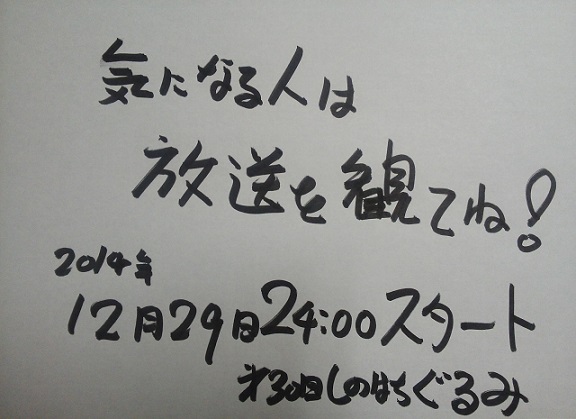 気になる人は
放送を観てね!
2014年
12月29日24:00スタート
しのはちぐるみ